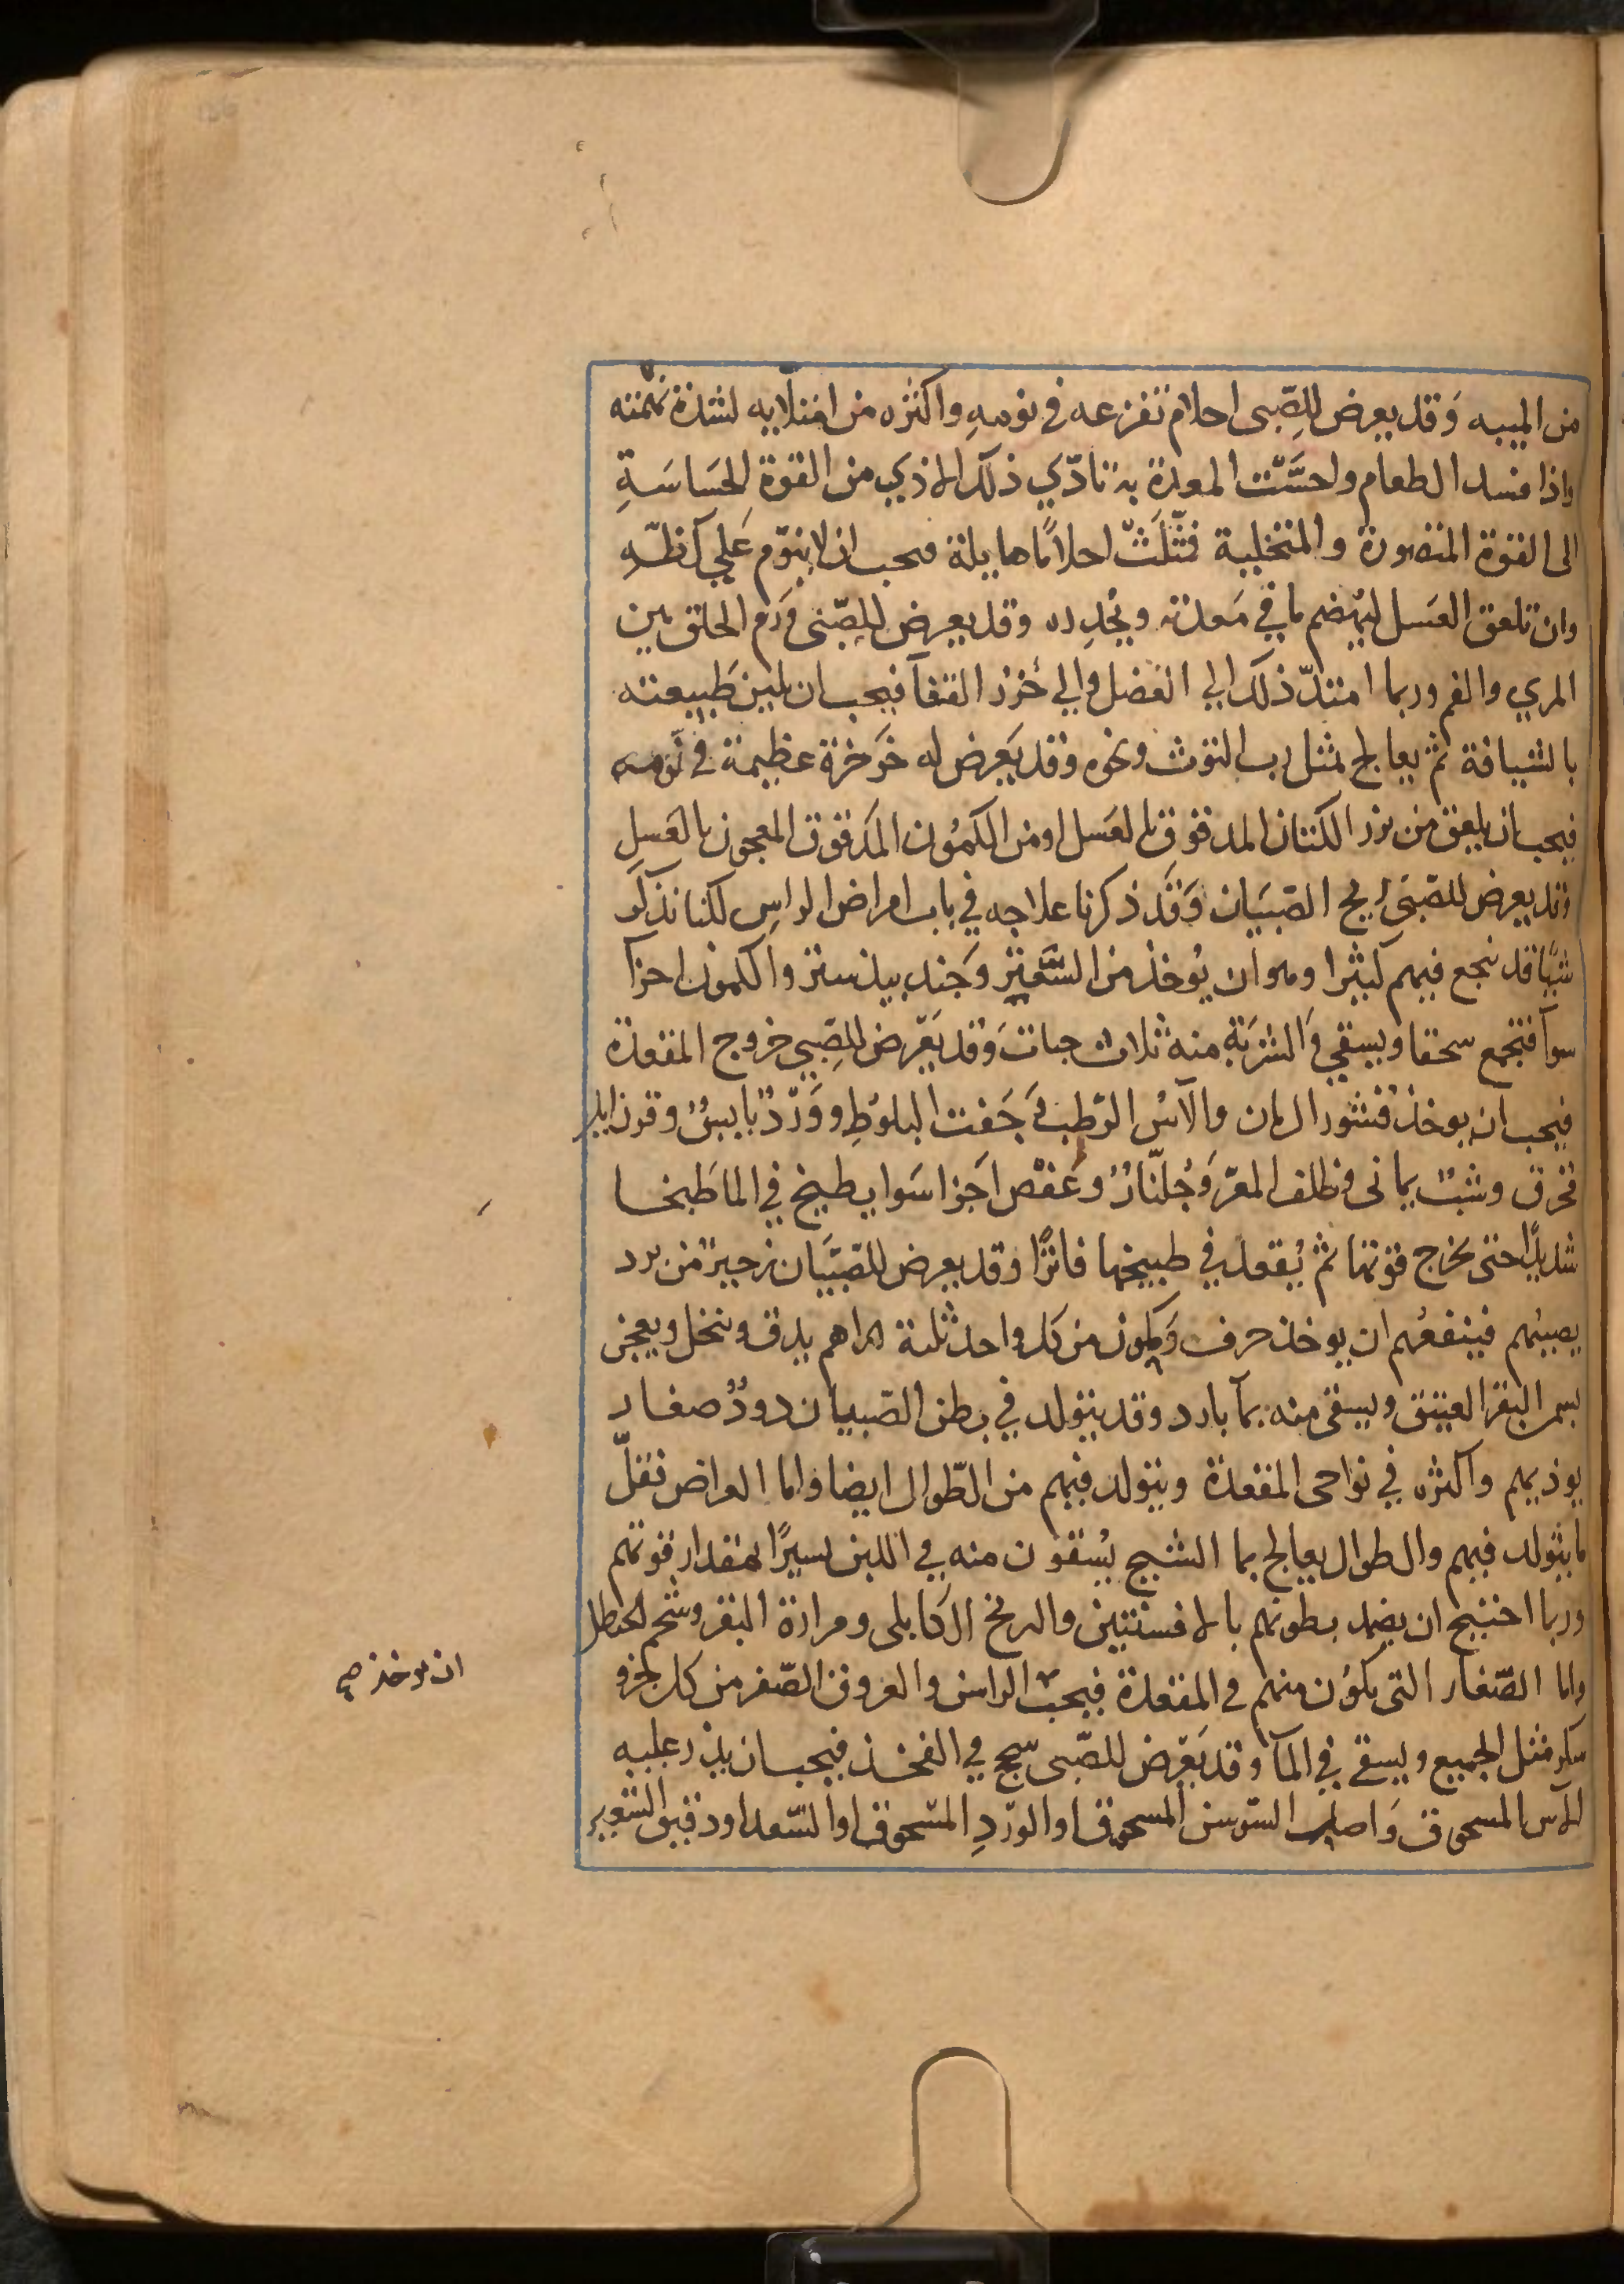 من الميبه وَقد يعرض للِصّبى احلام تفزعه فى نومهِ واكثره من امتلايه لشدة نهمته
واذا فسد الطعام واحسَّت المعدة به تادّي ذلك الاذي من القوة الحَساسَةِ
الى القوة المتصورة والمتخيلية فمثّلَتْ احلامًا هايلة فحب ان لا ينوّم عَلي كظّهِ
وان تلعق العَسل ليهضم ما في مَعدته ويُحدِره وقد يعرض للصّبى وَرَم الحلق بين
المري والفم وربما امتدّ ذلك الي العضل والي خُرُز القفآ فيجب ان يلين طَبيعته
بالشيافة ثم يعالج بمثل رب التوث ونحوه وقد يَعرض له خَرخرة عظيمة في نومه
فيجب ان يلعق من بزر الكتان المدقوق بالعَسل او من الكمُون المَدقوق المعجون بالعَسلِ
وقد يعرض للصّبي ريح الصّبيَان وَقَد ذكرنا علاجه في باب امراض الراسِ لكنا نذكر
شيًا قد نجع فيهم كثيرا وهو ان يُوخذ من السَّعتر وجَند بيدستر والكمون اجزآ
سوآ فتجمع سحقا ويسقي وَالشرَبَة منه ثلاث حبات وَقد يَعرَض للِصّبي خروج المقعدة
فيجب ان يوخذ قشور الرمان والآس الرّطب وَجَفت البلوُطِ ووَرْدٌ يابسٌ وقرن ايل
محرق وشبٌ يمانى وظلف المعَز وَجُلّنارٌ وعَفْص اجَزا سَوا يطبخ في الما طَبخا
شديدًا حتى يخرج قوتها ثم يُقعد في طبيخها فاترًا وقد يعرض للصّبيَان زحيرٌ من برد
يصيبُهم فينفعُهم ان يوخذ حرف وَكمون من كل واحد ثلثة دراهم يدق وينخل ويعجن
بسمن البقر العتيق ويسقى منه بمآ بارد وقد يتولد في بطن الصّبيان دودٌ صغار
يوذيهم واكثره في نواحى المقعدة ويتولد فيهم من الطّوال ايضا واما العراض فقلّ
ما يتولد فيهم والطوال يعالج بما الشيح يُسقون منه في اللبن يسيرًا بمقدار قوتهم
وربما احتيج ان يضمد بطونهم بالافسنتين والبرنج الكَابلى ومرارة البقر وشحم الحنظل
واما الصّغار التي يكوُن منهم في المقعدة فيجب الراسن والعروق الصّفر من كل جزو
ان يوخذ صح
سكر مثل الجميع ويسقي في المآ وقد يَعرَض للصّبى سحج في الفخذ فيجب ان يذر عليه
الآس المسحوق وَاصل السّوسن المسحوق او الورَدِ المسّحوق او السّعد او دقيق الشعير